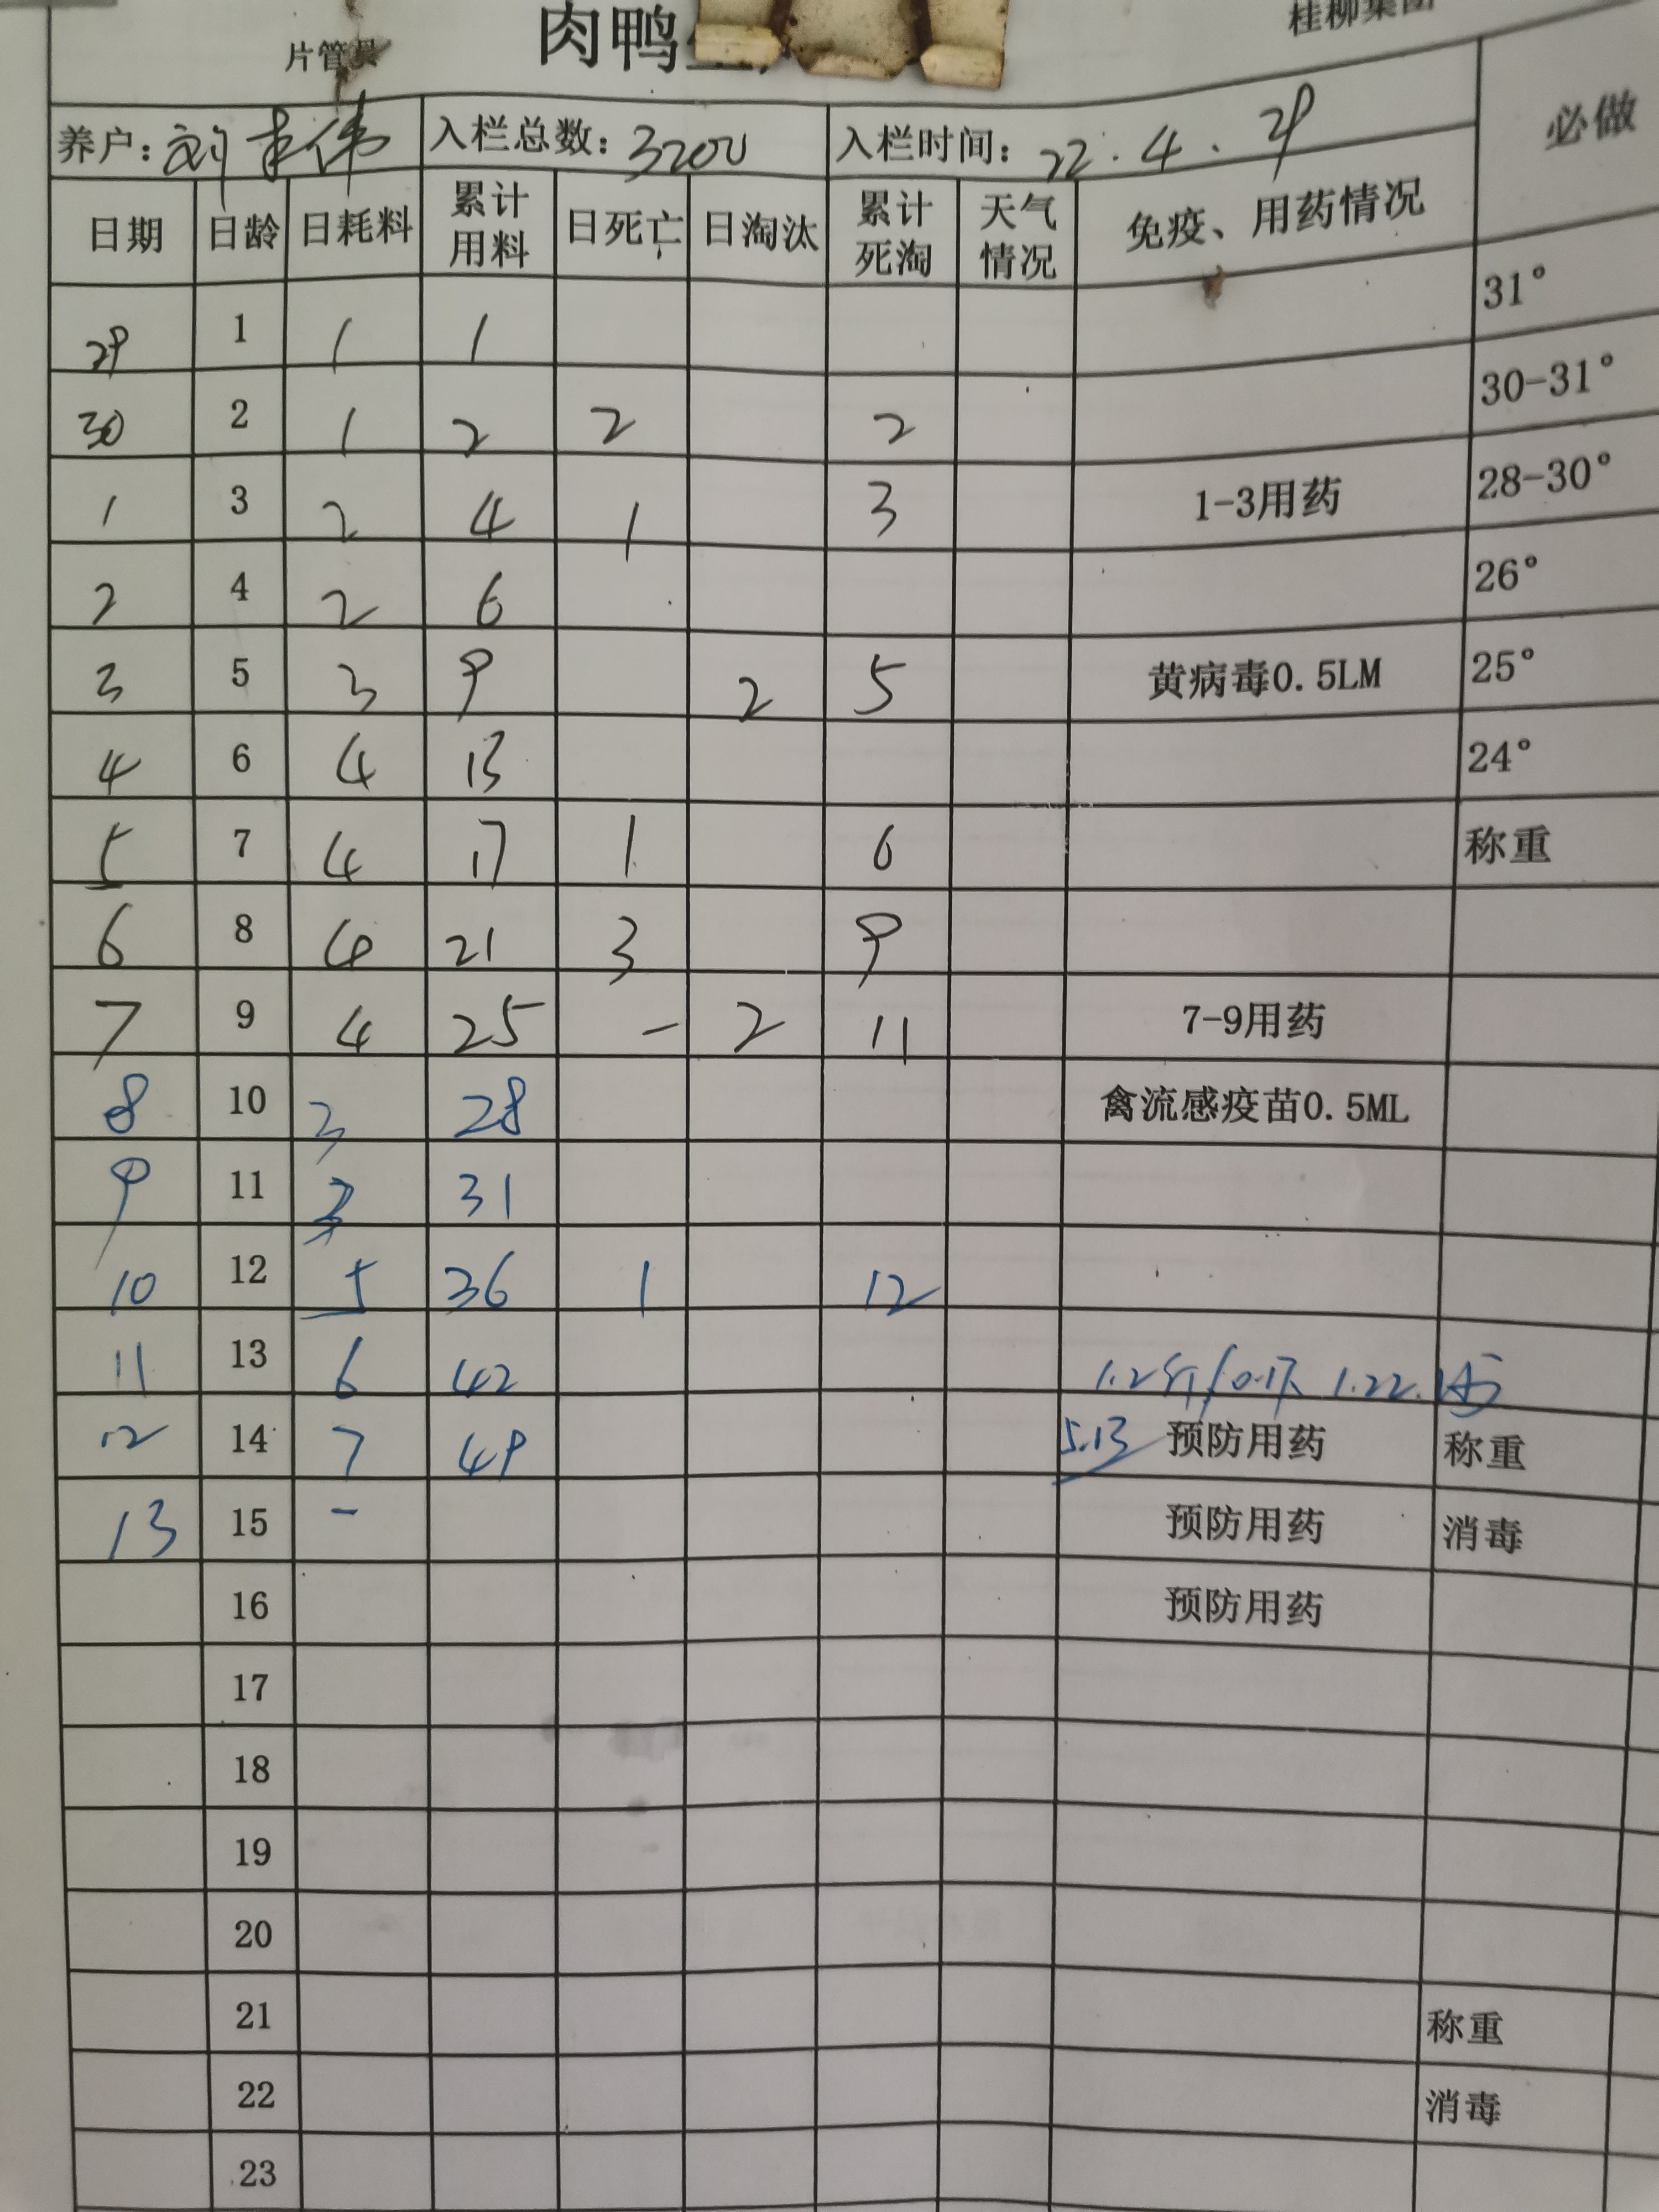 桂柳集团
片管员 肉鸭
养户: 刘 伟 入栏总数: 3200 入栏时间: 22.4.29 必做
日期 日龄 日耗料 累计用料 日死亡 日淘汰 累计死淘 天气情况 免疫、用药情况
29 1 1 1 31°
30 2 1 2 2 2 30-31°
1 3 2 4 1 3 1-3用药 28-30°
2 4 2 6 26°
3 5 3 9 2 5 黄病毒0.5LM 25°
4 6 4 13 24°
5 7 4 17 1 6 称重
6 8 4 21 3 9
7 9 4 25 - 2 11 7-9用药
8 10 3 28 禽流感疫苗0.5ML
9 11 3 31
10 12 5 36 1 12
11 13 6 42 1.2 1.22
12 14 7 49 5.13 预防用药 称重
13 15 - 预防用药 消毒
16 预防用药
17
18
19
20
21 称重
22 消毒
23